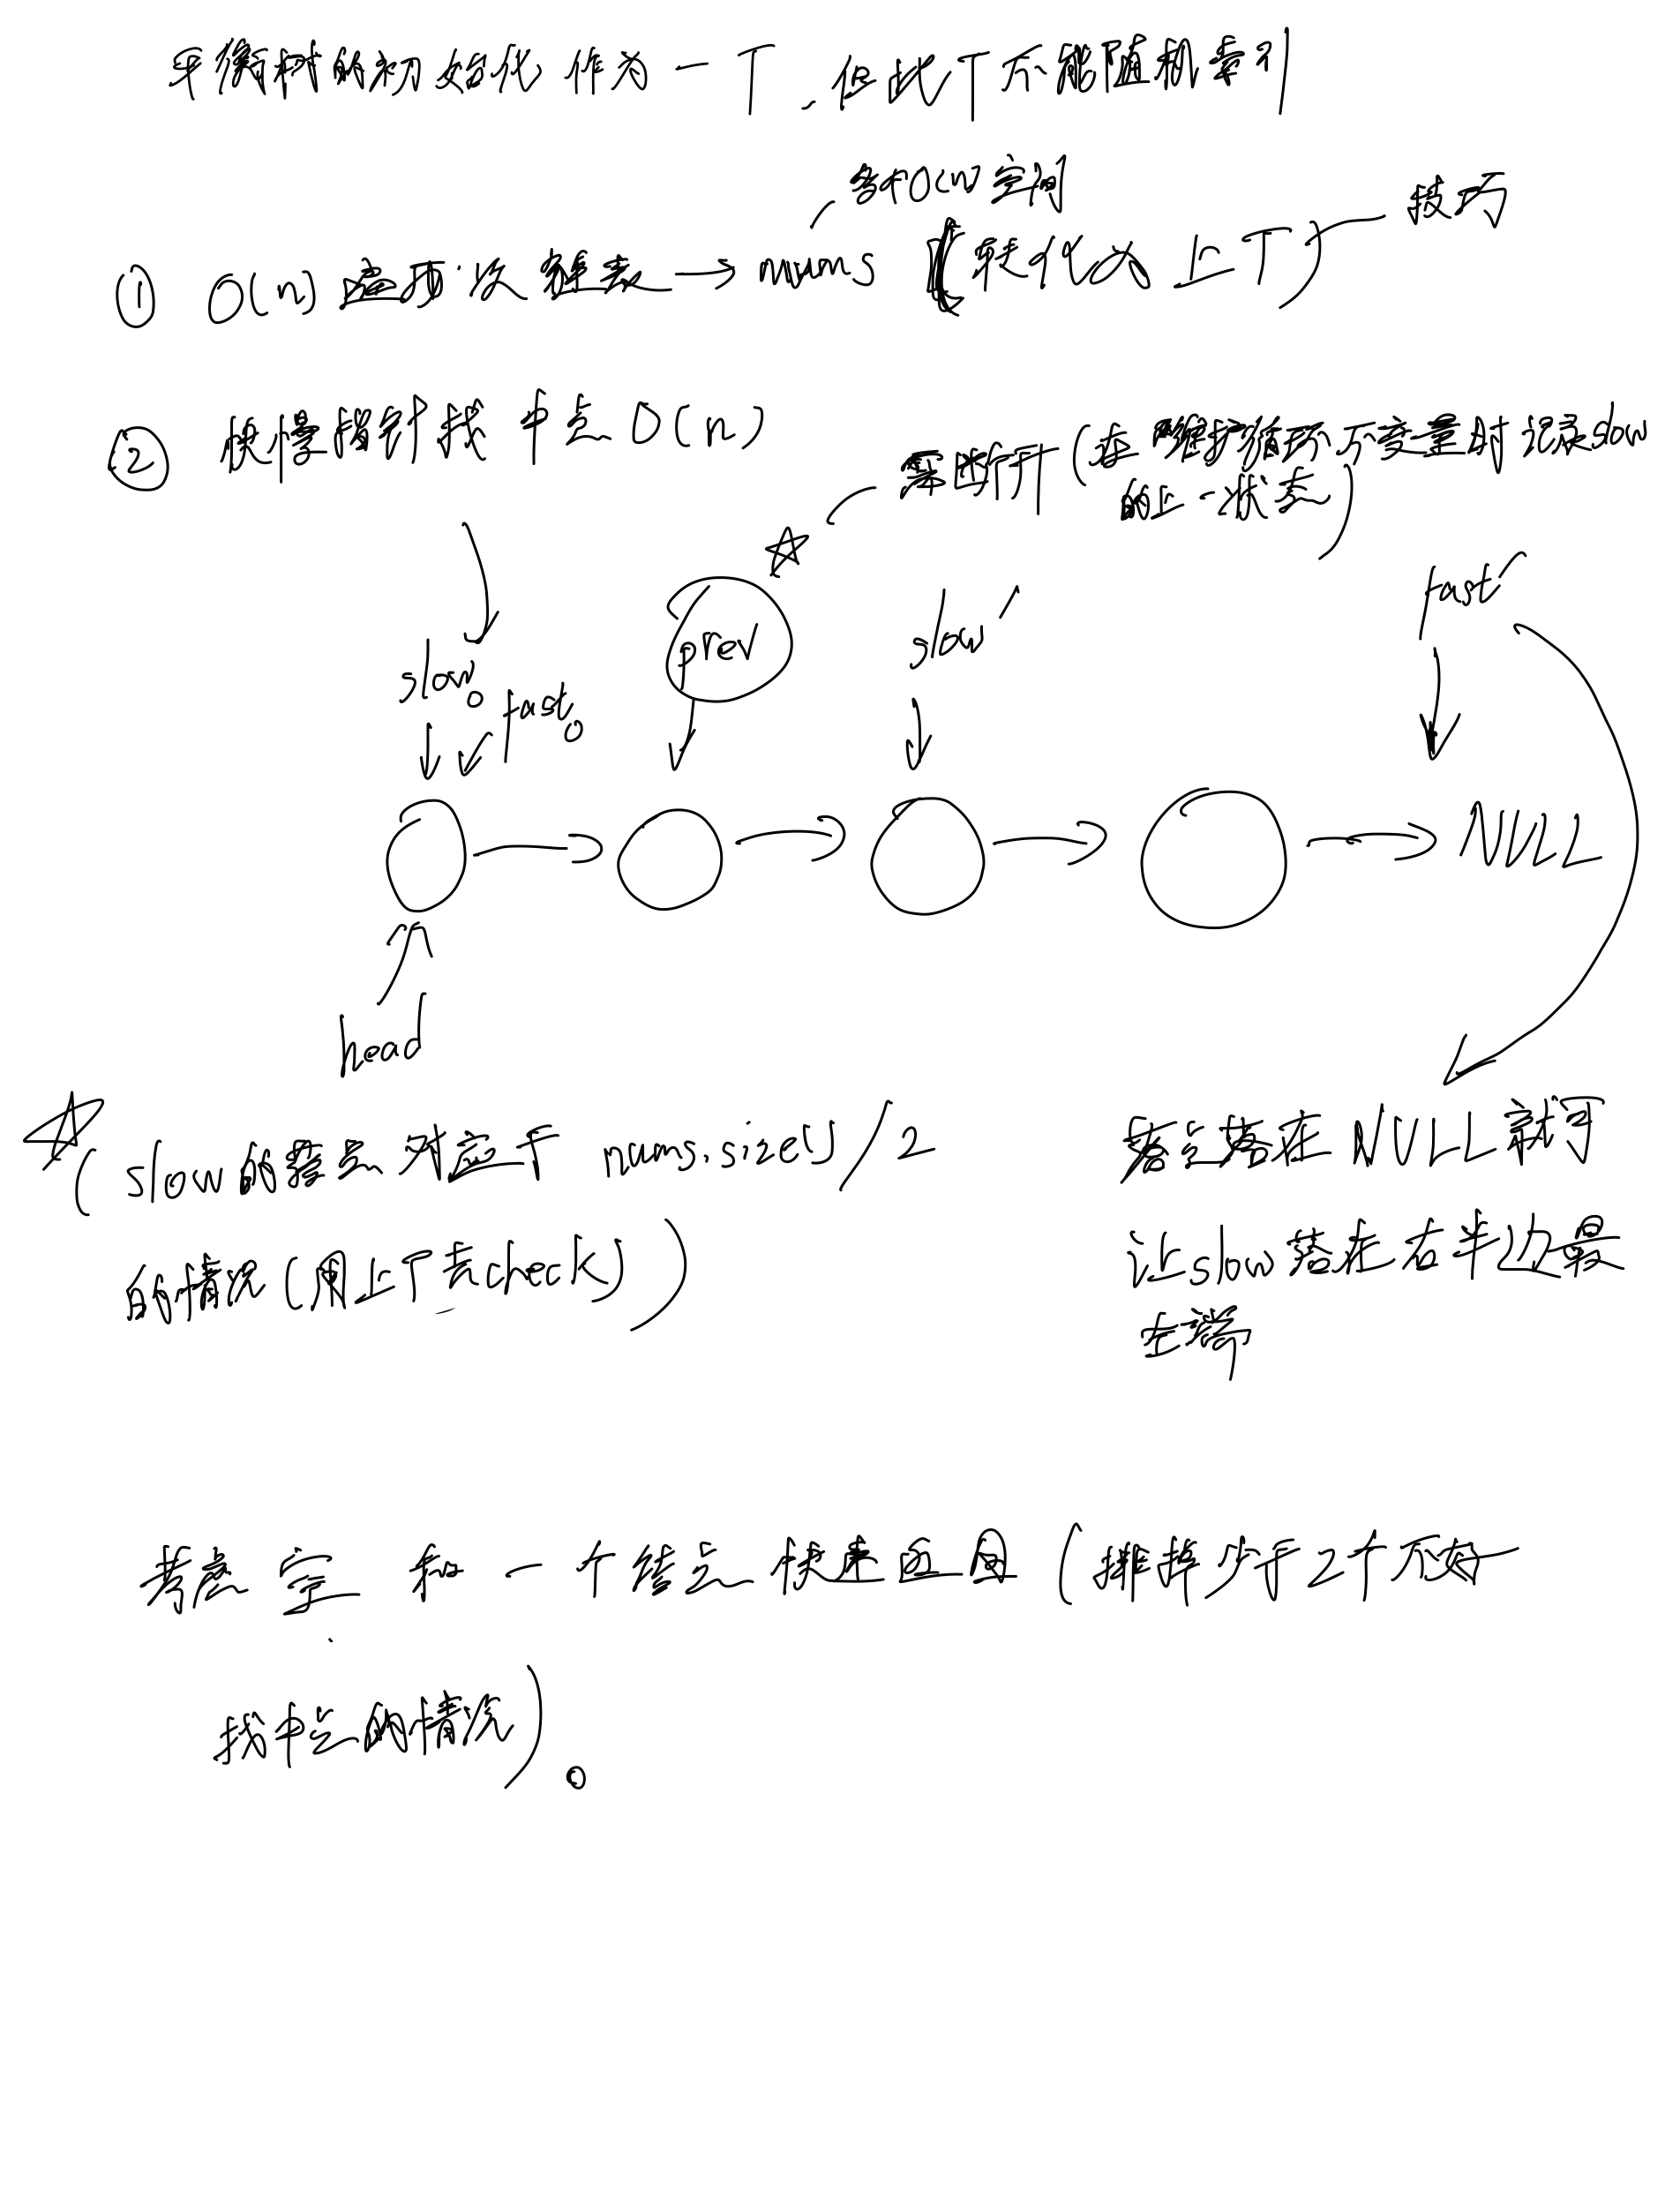 平衡树的初始化 作为一 T, 但此T不能随机索引
多扣O(n)空间
技巧
① O(n) 遍历一次链表 → nums (转化为上T)
② 快慢指针找中点 O(n)
要断开 (在维护循环不变量时记录slow
的上一状态)
fast'
prev
slow'
slow0
fast0
NULL
head
(slow的落点对应于 nums.size()/2
的情况 (用上T去check))
落点落在NULL就可
让slow落在右半边最
左端
考虑空 和一个结点快速返回 (排掉少于2个不好
找中点的情况)。